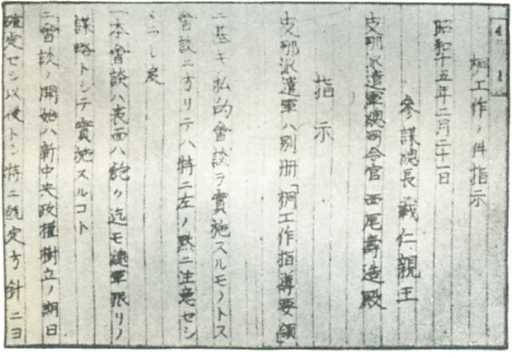 桐工作ノ件指示
昭和十五年二月二十一日
參謀總長 載仁親王
支那派遣軍總司令官 西尾壽造殿
指示
支那派遣軍ハ別冊「桐工作指導要領」
ニ基キ私的會談ヲ實施スルモノトス
會談ニ方リテハ特ニ左ノ點ニ注意セシ
メラレ度
一本會談ハ表面ハ飽ク迄モ總軍限リノ
謀略トシテ實施スルコト
二會談ノ開始ハ新中央政權樹立ノ期日
確定セシ以後トシ特ニ既定方針ニヨ